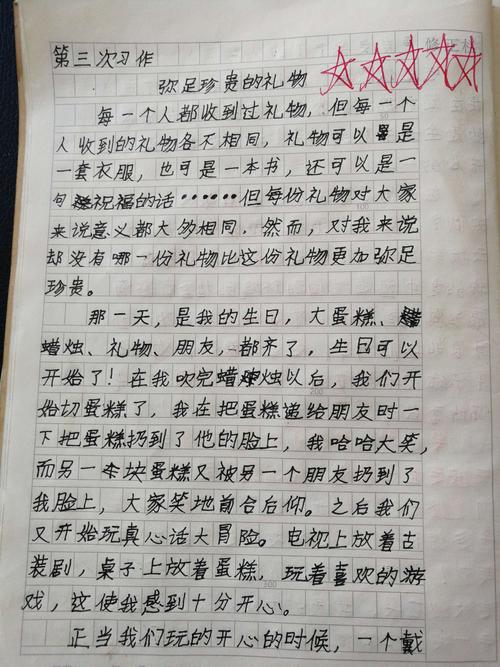 第三次习作
弥足珍贵的礼物
每一个人都收到过礼物，但每一个
人收到的礼物各不相同，礼物可以是
一套衣服，也可是一本书，还可以是一
句祝福的话……但每份礼物对大家
来说意义都大多相同，然而，对我来说
却没有哪一份礼物比这份礼物更加弥足
珍贵。
那一天，是我的生日，大蛋糕、
蜡烛、礼物、朋友，都齐了，生日可以
开始了！在我吹完蜡烛以后，我们开
始切蛋糕了，我在把蛋糕递给朋友时一
下把蛋糕扔到了他的脸上，我哈哈大笑，
而另一块蛋糕又被另一个朋友扔到了
我脸上，大家笑地前合后仰。之后我们
又开始玩真心话大冒险。电视上放着古
装剧，桌子上放着蛋糕，玩着喜欢的游
戏，这使我感到十分开心。
正当我们玩的开心的时候，一个戴